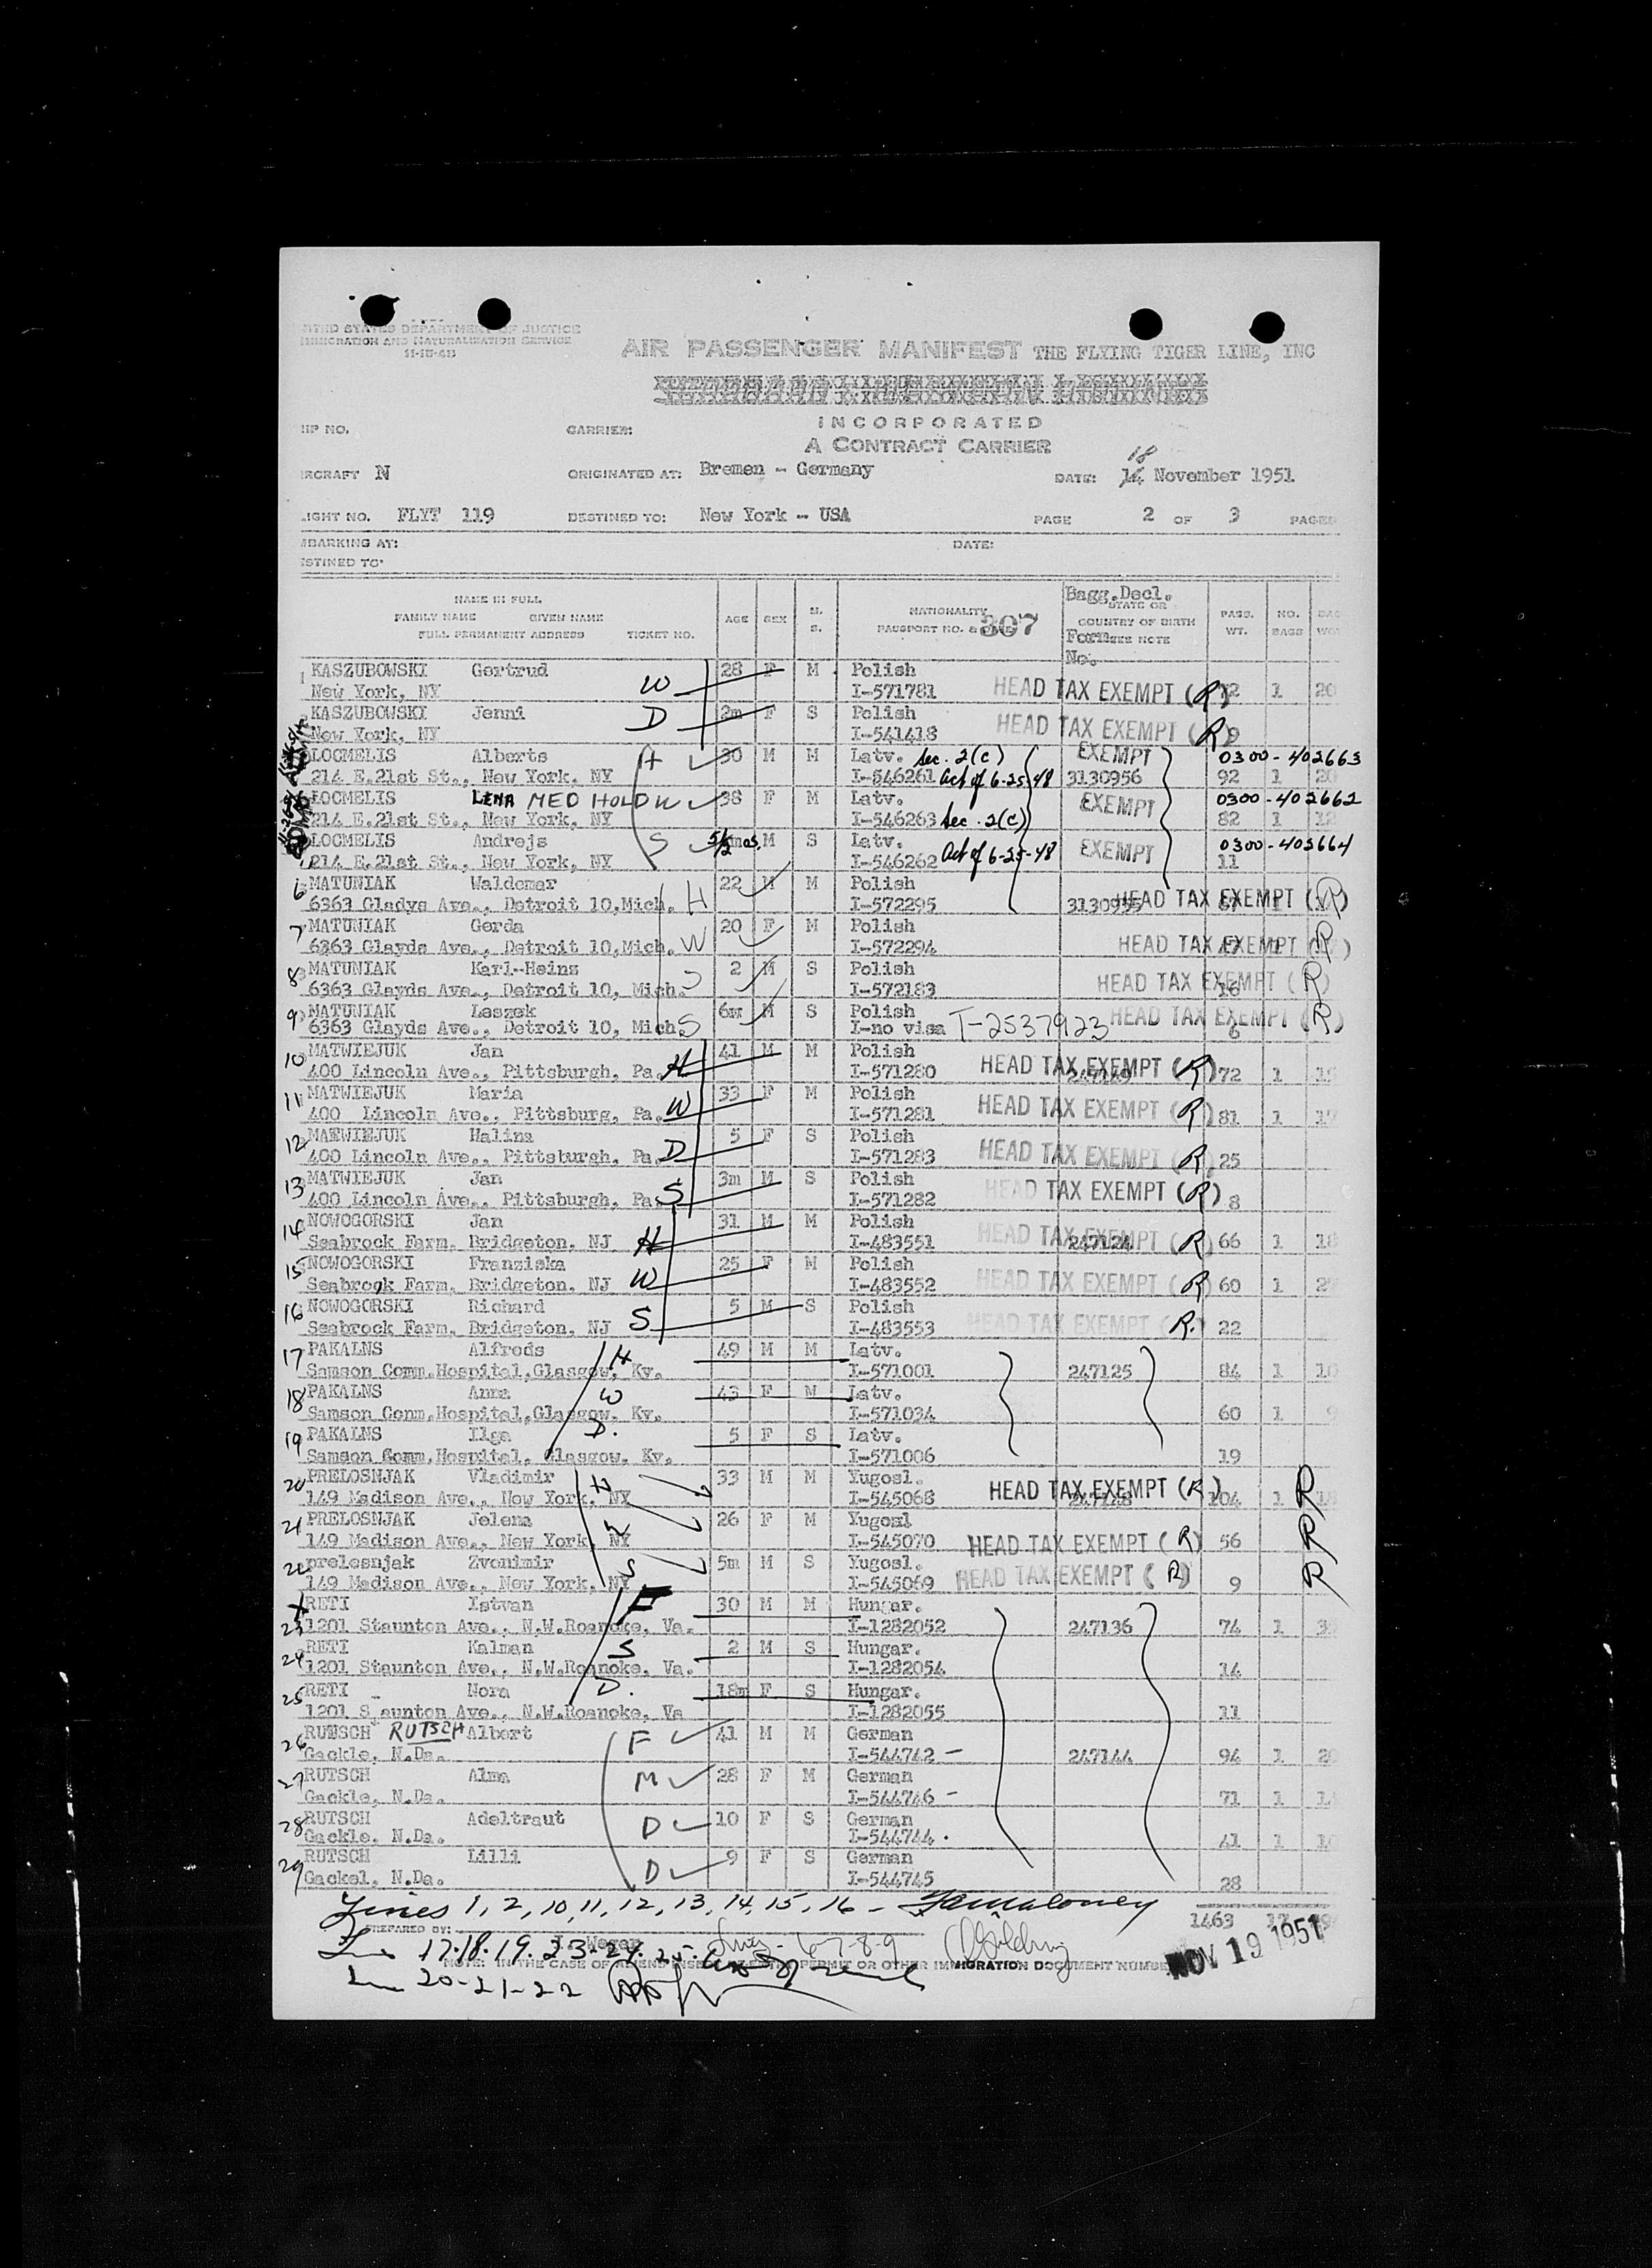 UNITED STATES DEPARTMENT OF JUSTICE
IMMIGRATION AND NATURALIZATION SERVICE
11-15-48
AIR PASSENGER MANIFEST THE FLYING TIGER LINE, INC
INCORPORATED
A CONTRACT CARRIER
IP NO. CARRIER:
18
RCRAFT N ORIGINATED AT: Bremen - Germany DATE: 14 November 1951
IGHT NO. FLYT 119 DESTINED TO: New York - USA PAGE 2 OF 3 PAGES
MBARKING AT: DATE:
STINED TO
NAME IN FULL
FAMILY NAME GIVEN NAME
FULL PERMANENT ADDRESS TICKET NO.
AGE SEX M. S.
NATIONALITY
PASSPORT NO. & 307
Bagg.Decl.
STATE OR
COUNTRY OF BIRTH
Form SEE NOTE
No.
PASS. WT. NO. BAGS
1 KASZUBOWSKI Gertrud 28 F M Polish
New York, NY W I-571781 HEAD TAX EXEMPT (R) 72 1 20
KASZUBOWSKI Jenni D 2m F S Polish
New York, NY I-541418 HEAD TAX EXEMPT (R) 9
LOCMELIS Alberts H 30 M M Latv. Sec. 2(c) EXEMPT 0300-402663
214 E.21st St., New York, NY I-546261 Act of 6-25-48 3130956 92 1 20
LOCMELIS LENA MED HOLD W 38 F M Latv. EXEMPT 0300-402662
214 E.21st St., New York, NY I-546263 Sec. 2(c) 82 1 12
LOCMELIS Andrejs S 5½mos. M S Latv. EXEMPT 0300-402664
214 E.21st St., New York, NY I-546262 Act of 6-25-48 11
6 MATUNIAK Waldemar 22 M M Polish
6363 Gladys Ave., Detroit 10,Mich. H I-572295 3130955 HEAD TAX EXEMPT (R)
7 MATUNIAK Gerda 20 F M Polish
6363 Glayds Ave., Detroit 10,Mich. W I-572294 HEAD TAX EXEMPT (R)
8 MATUNIAK Karl-Heinz 2 M S Polish
6363 Glayds Ave., Detroit 10, Mich. S I-572183 HEAD TAX EXEMPT (R) 16
9 MATUNIAK Leszek 6m M S Polish
6363 Glayds Ave., Detroit 10, Mich. S I-no visa T-2537923 HEAD TAX EXEMPT (R) 6
10 MATWIEJUK Jan 41 M M Polish
400 Lincoln Ave., Pittsburgh, Pa. H I-571280 HEAD TAX EXEMPT (R) 72 1 15
11 MATWIEJUK Maria 33 F M Polish
400 Lincoln Ave., Pittsburg, Pa. W I-571281 HEAD TAX EXEMPT (R) 81 1 17
12 MAEWIEJUK Halina 5 F S Polish
400 Lincoln Ave., Pittsturgh, Pa. D I-571283 HEAD TAX EXEMPT (R 25
13 MATWIEJUK Jan 3m M S Polish
400 Lincoln Ave., Pittsburgh, Pa. S I-571282 HEAD TAX EXEMPT (R) 8
14 NOWOGORSKI Jan 31 M M Polish
Seabrock Farm, Bridgeton, NJ H I-483551 247124 HEAD TAX EXEMPT (R) 66 1 18
15 NOWOGORSKI Franziska 25 F M Polish
Seabrook Farm, Bridgeton, NJ W I-483552 HEAD TAX EXEMPT (R) 60 1
16 NOWOGORSKI Richard 5 M S Polish
Seabrock Farm, Bridgeton, NJ S I-483553 HEAD TAX EXEMPT (R.) 22
17 PAKALNS Alfreds H 49 M M Latv.
Samson Comm.Hospital,Glasgow, Ky. I-571001 247125 84 1 10
18 PAKALNS Anna W 43 F M Latv.
Samson Comm.Hospital,Glasgow, Ky. I-571034 60 1 9
19 PAKALNS Ilga D. 5 F S Latv.
Samson Comm.Hospital, Glasgow, Ky. I-571006 19
20 PRELOSNJAK Vladimir H 33 M M Yugosl.
149 Madison Ave., New York, NY I-545068 HEAD TAX EXEMPT (R) 104 1 18 R
21 PRELOSNJAK Jelena W 26 F M Yugosl
149 Madison Ave., New York, NY I-545070 HEAD TAX EXEMPT (R) 56 R
22 prelosnjak Zvonimir S 5m M S Yugosl.
149 Madison Ave., New York, NY I-545069 HEAD TAX EXEMPT (R) 9 R
X RETI Istvan F 30 M M Hungar.
23 1201 Staunton Ave., N.W.Roanoke, Va. I-1282052 247136 74 1
24 RETI Kalman S 2 M S Hungar.
1201 Staunton Ave., N.W.Roanoke, Va. I-1282054 14
25 RETI Nora D. 18m F S Hungar.
1201 S aunton Ave., N.W.Roanoke, Va I-1282055 11
26 RUTSCH RUTSCH Albert F 41 M M German
Gackle, N.Da. I-544742 - 247144 94 1 20
27 RUTSCH Alma M 28 F M German
Gackle, N.Da. I-544746 - 71 1
28 RUTSCH Adeltraut D 10 F S German
Gackle, N.Da. I-544744 . 41 1
29 RUTSCH Lilli D 9 F S German
Gackel, N.Da. I-544745 28
Lines 1, 2, 10, 11, 12, 13, 14, 15, 16 - Maloney
1463 17
PREPARED BY: Weger Lines - 6-7-8-9
17.18.19. 23-24. 25.
NOTE: IN THE CASE OF PERMIT OR OTHER IMMIGRATION DOCUMENT NUMBE
NOV 19 1951
20-21-22